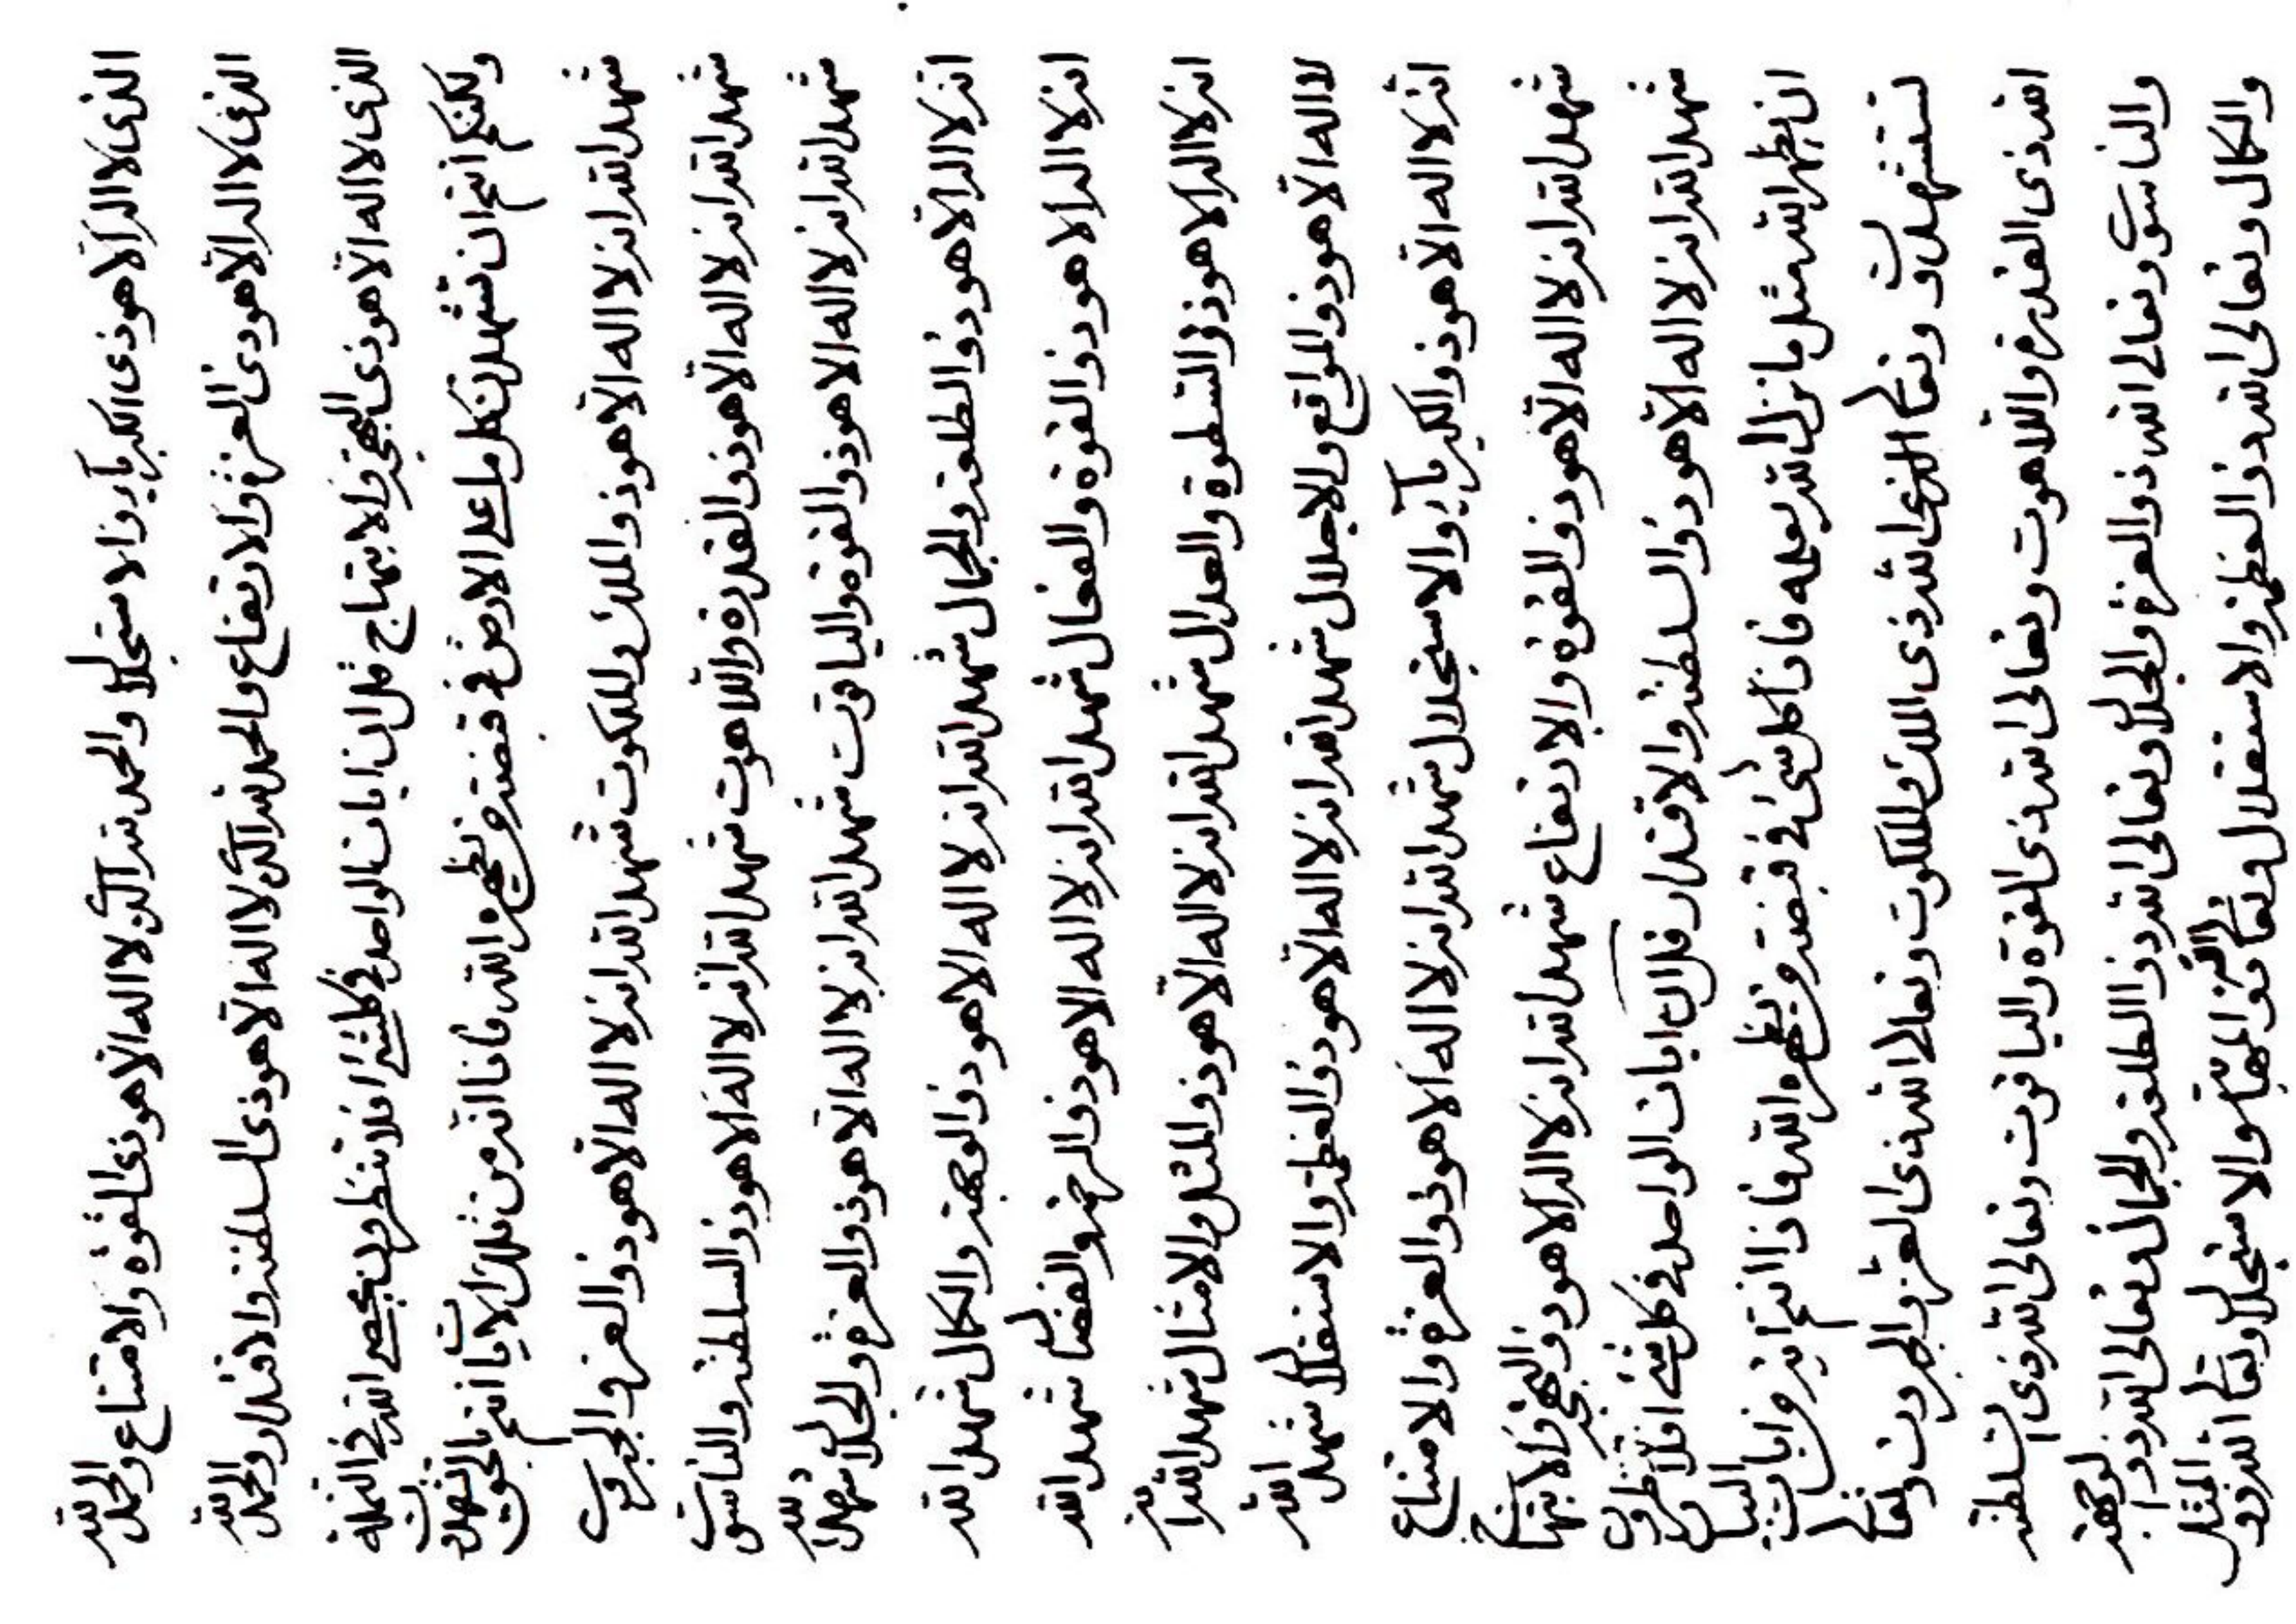 الذى لا اله الا هو ذى الكبرياء والاستجلال والحمد لله الذى لا اله الا هو ذى القوة والامتناع والحمد لله
الذى لا اله الا هو ذى العزة والارتفاع والحمد لله الذى لا اله الا هو ذى السلطنة والاقتدار والحمد لله
الذى لا اله الا هو ذى البهجة والابتهاج قل ان ايات الواحد فى كلشئ افلا تنظرون يحصى الله فى النملة
ولكنكم انتم ان تشهدن بكل ما على الارض فى قبضته ويظهره الله فانا انه من تلك الايات انتم بالحق لتشهدن
شهد الله انه لا اله الا هو ذو الملك والملكوت شهد الله انه لا اله الا هو ذو العز والجبروت
شهد الله انه لا اله الا هو ذو القدرة واللاهوت شهد الله انه لا اله الا هو ذو السلطنة والناسوت
شهد الله انه لا اله الا هو ذو القوة والياقوت شهد الله انه لا اله الا هو ذو العزة والجلال شهد الله
انه لا اله الا هو ذو الطلعة والجمال شهد الله انه لا اله الا هو ذو الوجهة والكمال شهد الله
انه لا اله الا هو ذو القوة والفعال شهد الله انه لا اله الا هو ذو الرحمة والفضال شهد الله
انه لا اله الا هو ذو السطوة والعدال شهد الله انه لا اله الا هو ذو المثل والامثال شهد الله انه
لا اله الا هو ذو المواقع والاجلال شهد الله انه لا اله الا هو ذو العظمة والاستقلال شهد الله
انه لا اله الا هو ذو الكبرياء والاستجلال شهد الله انه لا اله الا هو ذو العزة والامتناع
شهد الله انه لا اله الا هو ذو القوة والارتفاع شهد الله انه لا اله الا هو ذو البهجة والابتهاج
شهد الله انه لا اله الا هو ذو السلطنة والاقتدار قل ان ايات الواحد فى كل شئ افلا تنظرون
ان يظهر الله مثل ما نزل الله بعلمه فاذا كل شئ فى قبضته ويظهره الله فاذا انتم ايذ وايات البيان
لتستشهدون وتعالى الذى الله ذى الملك والملكوت وتعالى الله ذى العز والجبروت وتعالى
الله ذى القدرة واللاهوت وتعالى الله ذى القوة والياقوت وتعالى الله ذى السلطنة
والناسوت وتعالى الله ذو العزة والجلال وتعالى الله ذو الطلعة والجمال وتعالى الله ذو الوجهة
والكمال وتعالى الله ذو العظمة والاستقلال وتعالى الله ذو العز والمقاعد والاستجلال وتعالى الله ذو المثل